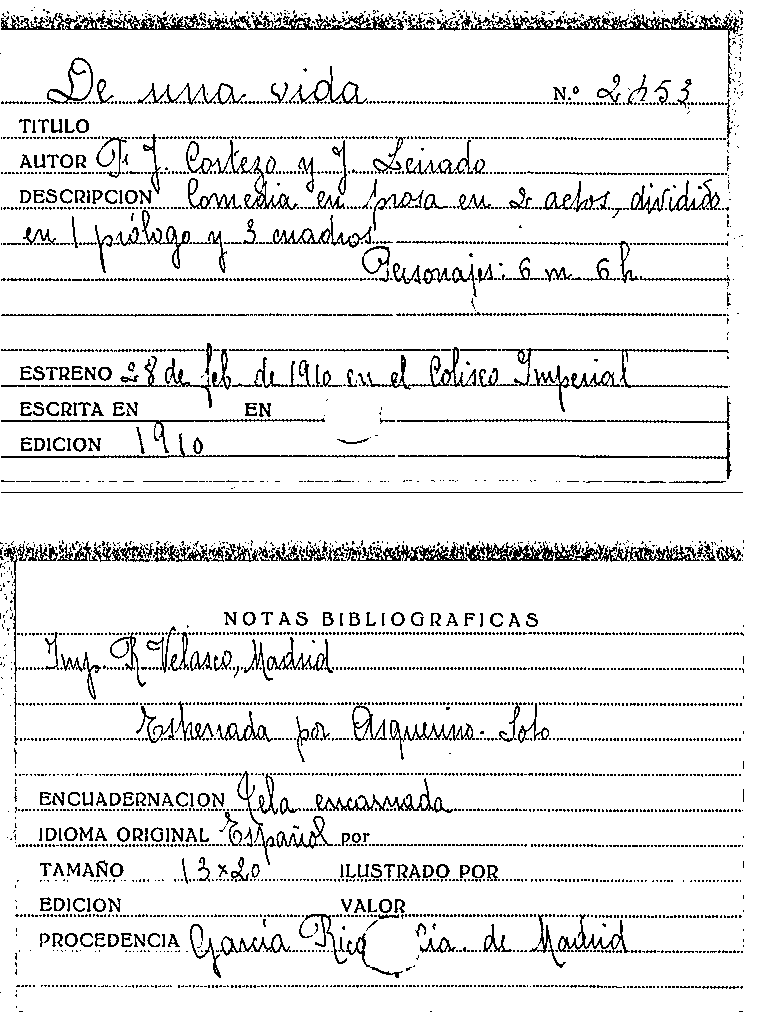 De una vida N.º 2453
TITULO
AUTOR F. J. Cortezo y J. Leirado
DESCRIPCION Comedia en prosa en 2 actos, dividido
en 1 prólogo y 3 cuadros
Personajes: 6 m 6 h.
ESTRENO 28 de feb. de 1910 en el Coliseo Imperial
ESCRITA EN EN
EDICION 1910
NOTAS BIBLIOGRAFICAS
Imp. R. Velasco, Madrid
Estrenada por Asquerino-Soto
ENCUADERNACION Tela encarnada
IDIOMA ORIGINAL Español por
TAMAÑO 13x20 ILUSTRADO POR
EDICION VALOR
PROCEDENCIA García Rico Cía. de Madrid